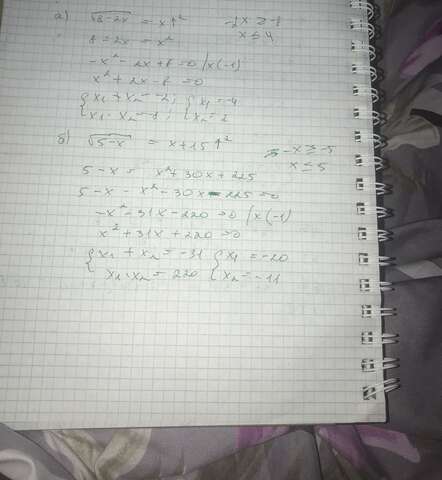 а) √8-2x = x ↑² -2x ≥ -8
x ≤ 4
8-2x = x²
-x²-2x+8=0 /x(-1)
x²+2x-8=0
{x₁+x₂=-2; {x₁=-4
x₁·x₂=-8; x₂=2
б) √5-x = x+15 ↑² -x ≥ -5
x ≤ 5
5-x = x²+30x+225
5-x-x²-30x-225=0
-x²-31x-220=0 /x(-1)
x²+31x+220=0
{x₁+x₂=-31 {x₁=-20
x₁·x₂=220 x₂=-11